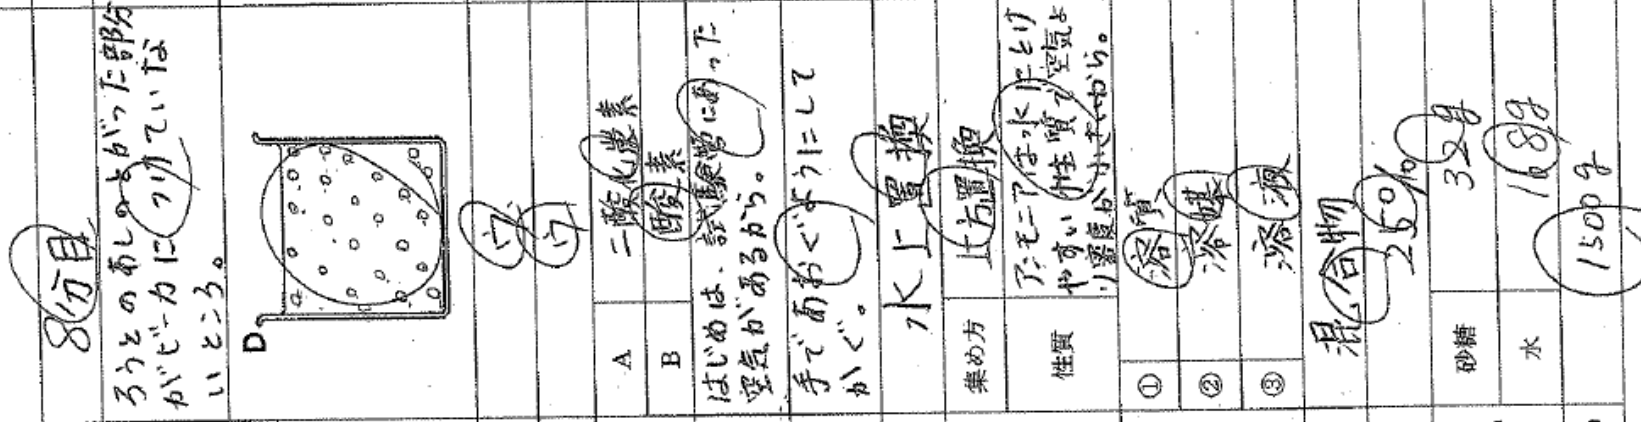 8分目
ろうとのあしのとがった部分
がビーカにつけていな
いところ。
D
ウ
ウ
A 二酸化炭素
B 酸素
はじめは、試験管にあった
空気があるから。
手であおぐようにして
かぐ。
水上置換
集め方 上方置換
性質 アンモニアは水にとけ
やすい性質で空気よ
り密度が小さいから。
① 溶質
② 溶媒
③ 溶液
混合物
25%
砂糖 32g
水 168g
1500g